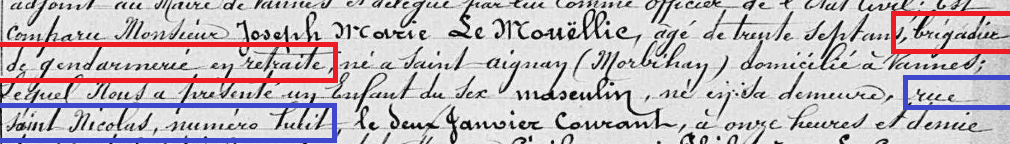 adjoint au Maire de Vannes et délégué par lui comme officier de l'Etat Civil; Est
Comparu Monsieur Joseph Marie Le Mouëllic, agé de trente sept ans, brigadier
de gendarmerie en retraite, né à Saint aignan (Morbihan) domicilié à Vannes;
Lequel Nous a présenté un Enfant du Sex masculin, né en sa demeure, rue
Saint Nicolas, numéro huit, le deux Janvier Courant, à onze heures et demie